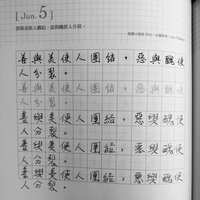 [ Jun. 5 ]
善與美使人團結，惡與醜使人分裂。
善與美使人團結，惡與醜使
人分裂。
善與美使人團結，惡與醜使
人分裂。
善與美使人團結，惡與醜使
人分裂。
善與美使人團結，惡與醜使
人分裂。